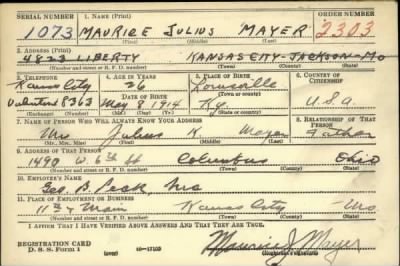 SERIAL NUMBER 1. NAME (Print) ORDER NUMBER
1073 MAURICE JULIUS MAYER 2303
(First) (Middle) (Last)
2. ADDRESS (Print)
4823 LIBERTY KANSAS CITY-JACKSON-MO
(Number and street or R. F. D. number) (Town) (County) (State)
3. TELEPHONE 4. AGE IN YEARS 5. PLACE OF BIRTH 6. COUNTRY OF CITIZENSHIP
Kansas City 26 Louisville
DATE OF BIRTH (Town or county)
Valentine 8363 May 8, 1914 Ky. U.S.A
(Exchange) (Number) (Mo.) (Day) (Yr.) (State or country)
7. NAME OF PERSON WHO WILL ALWAYS KNOW YOUR ADDRESS 8. RELATIONSHIP OF THAT PERSON
Julius K. Mayer Father
(Mr., Mrs., Miss) (First) (Middle) (Last)
9. ADDRESS OF THAT PERSON
1490 W. 6th St Columbus Ohio
(Number and street or R. F. D. number) (Town) (County) (State)
10. EMPLOYER'S NAME
Geo. B. Peck, Inc
11. PLACE OF EMPLOYMENT OR BUSINESS
11th & Main Kansas City Mo
(Number and street or R. F. D. number) (Town) (County) (State)
I AFFIRM THAT I HAVE VERIFIED ABOVE ANSWERS AND THAT THEY ARE TRUE.
REGISTRATION CARD
D. S. S. Form 1 (over) 16-17105 Maurice J Mayer